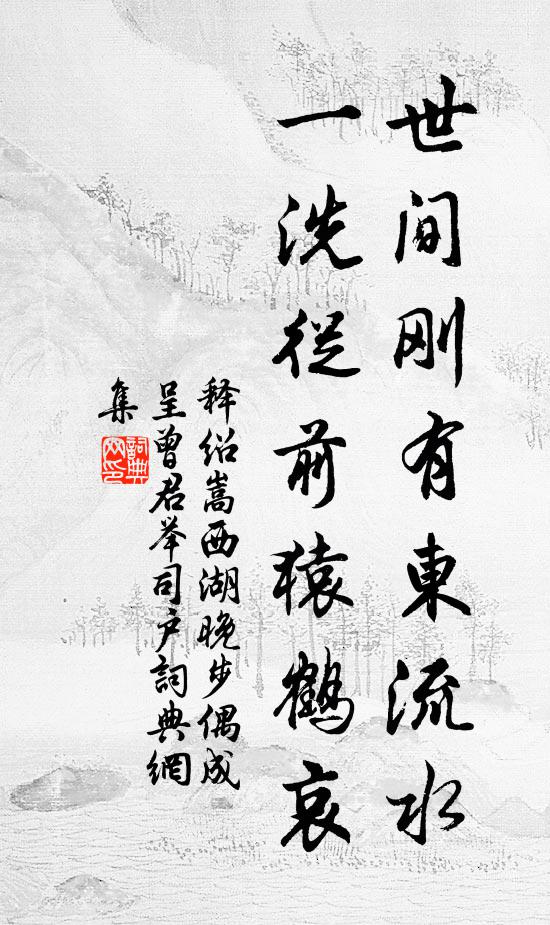 世间刚有東流水
一洗從前猿鶴哀
释绍嵩西湖晚步偶成
呈曾君举司户詞典網
集
詞典網印